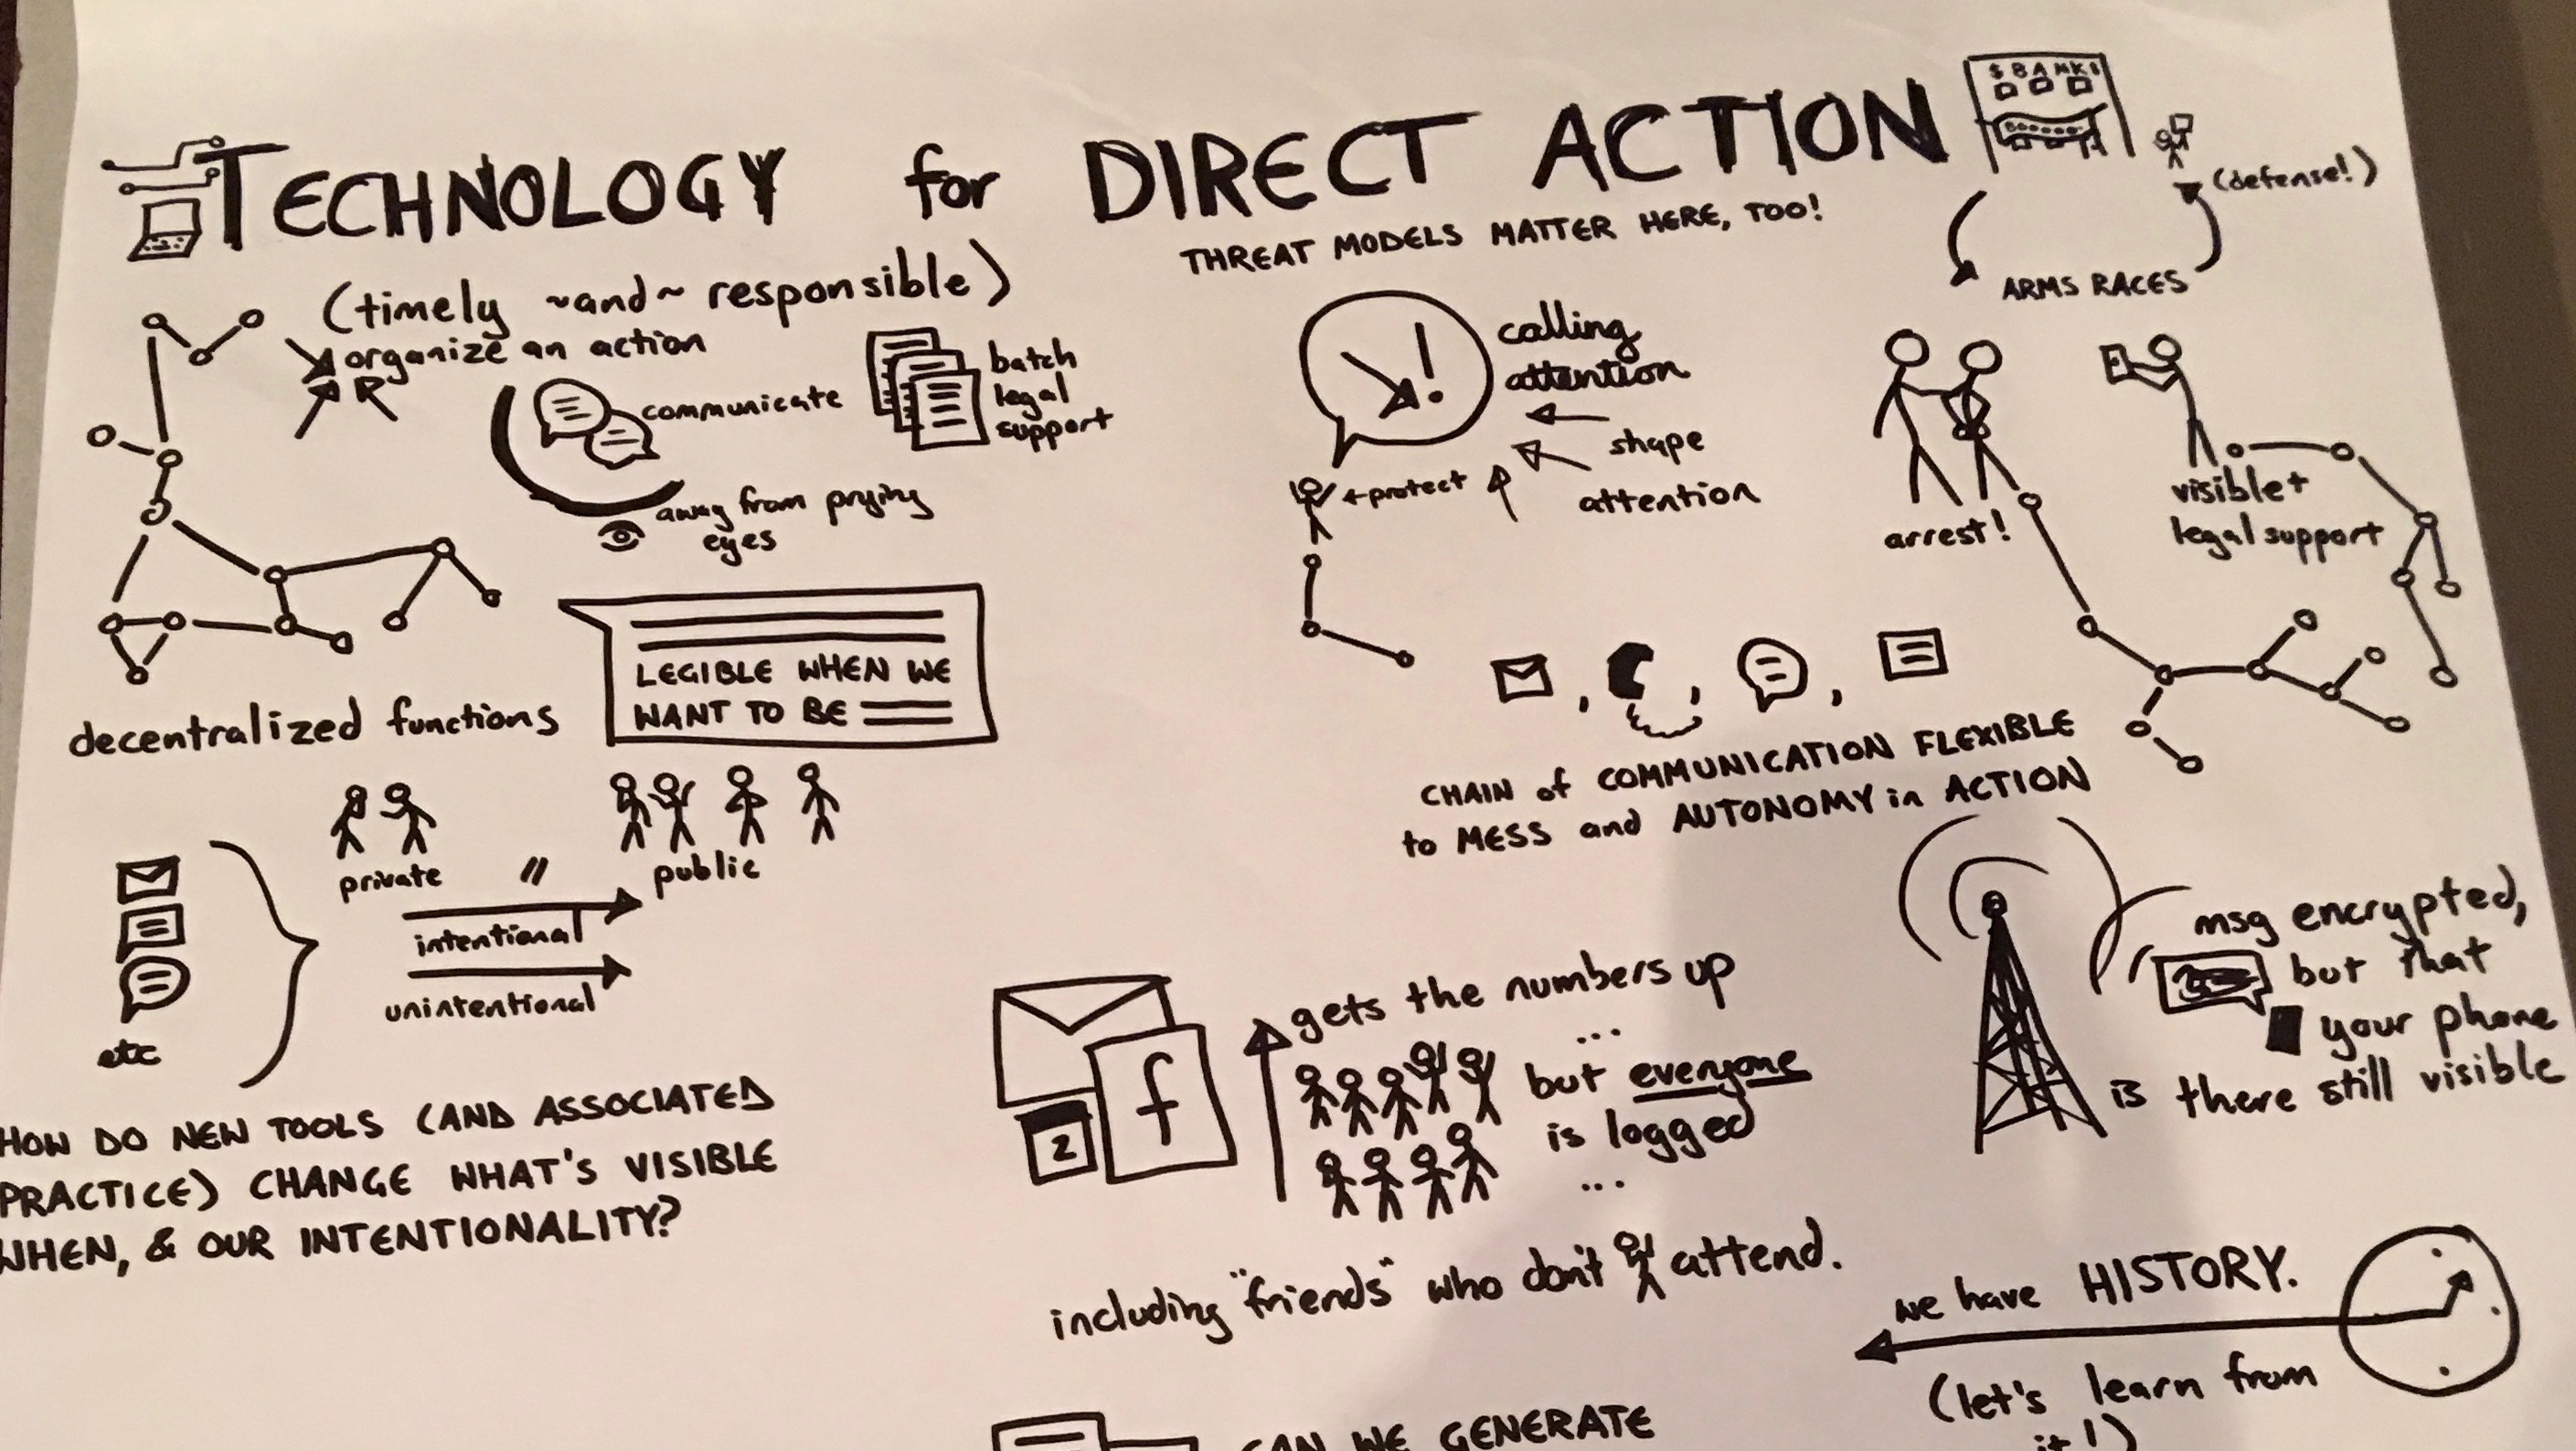 TECHNOLOGY for DIRECT ACTION
(timely ~and~ responsible)
THREAT MODELS MATTER HERE, TOO!
$ BANK $
(defense!)
ARMS RACES
organize an action
communicate
away from prying
eyes
batch
legal
support
decentralized functions
LEGIBLE WHEN WE
WANT TO BE
calling
attention
!
shape
attention
←protect
arrest!
visible +
legal support
CHAIN of COMMUNICATION FLEXIBLE
to MESS and AUTONOMY in ACTION
private
public
intentional
unintentional
etc
HOW DO NEW TOOLS (AND ASSOCIATED
PRACTICE) CHANGE WHAT'S VISIBLE
WHEN, & OUR INTENTIONALITY?
f
2
gets the numbers up
...
but everyone
is logged
...
including "friends" who don't attend.
msg encrypted,
but that
your phone
is there still visible
we have HISTORY.
(let's learn from
it!)
CAN WE GENERATE